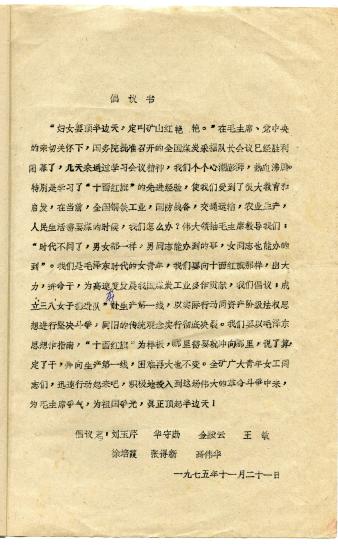 倡议书
“妇女要顶半边天，定叫矿山红艳艳。”在毛主席、党中央
的亲切关怀下，国务院批准召开的全国煤炭采掘队长会议已经胜利
闭幕了，几天来通过学习会议精神，我们个个心潮澎湃，热血沸腾
特别是学习了“十面红旗”的先进经验，使我们受到了很大教育和
启发，在当前，全国钢铁工业，国防战备，交通运输，农业生产，
人民生活需要煤的时候，我们怎么办？伟大领袖毛主席教导我们：
“时代不同了，男女都一样，男同志能办到的事，女同志也能办的
到”。我们是毛泽东时代的女青年，我们要向十面红旗那样，出大
力，拼命干，为高速度发展我国煤炭工业多作贡献，我们倡议：成
立三八女子掘进队，赴生产第一线，以实际行动同资产阶级法权思
想进行坚决斗争，同旧的传统观念实行彻底决裂。我们要以毛泽东
思想作指南，“十面红旗”为榜样，那里需要就冲向那里，说了算
定了干，奔向生产第一线，困难再大也不变。全矿广大青年女工同
志们，迅速行动起来吧，积极地投入到这场伟大的革命斗争中来，
为毛主席争气，为祖国争光，真正顶起半边天！
倡议者：刘玉芹 华守勋 金淑云 王敏
徐培霞 张得新 聂伟华
一九七五年十一月二十一日